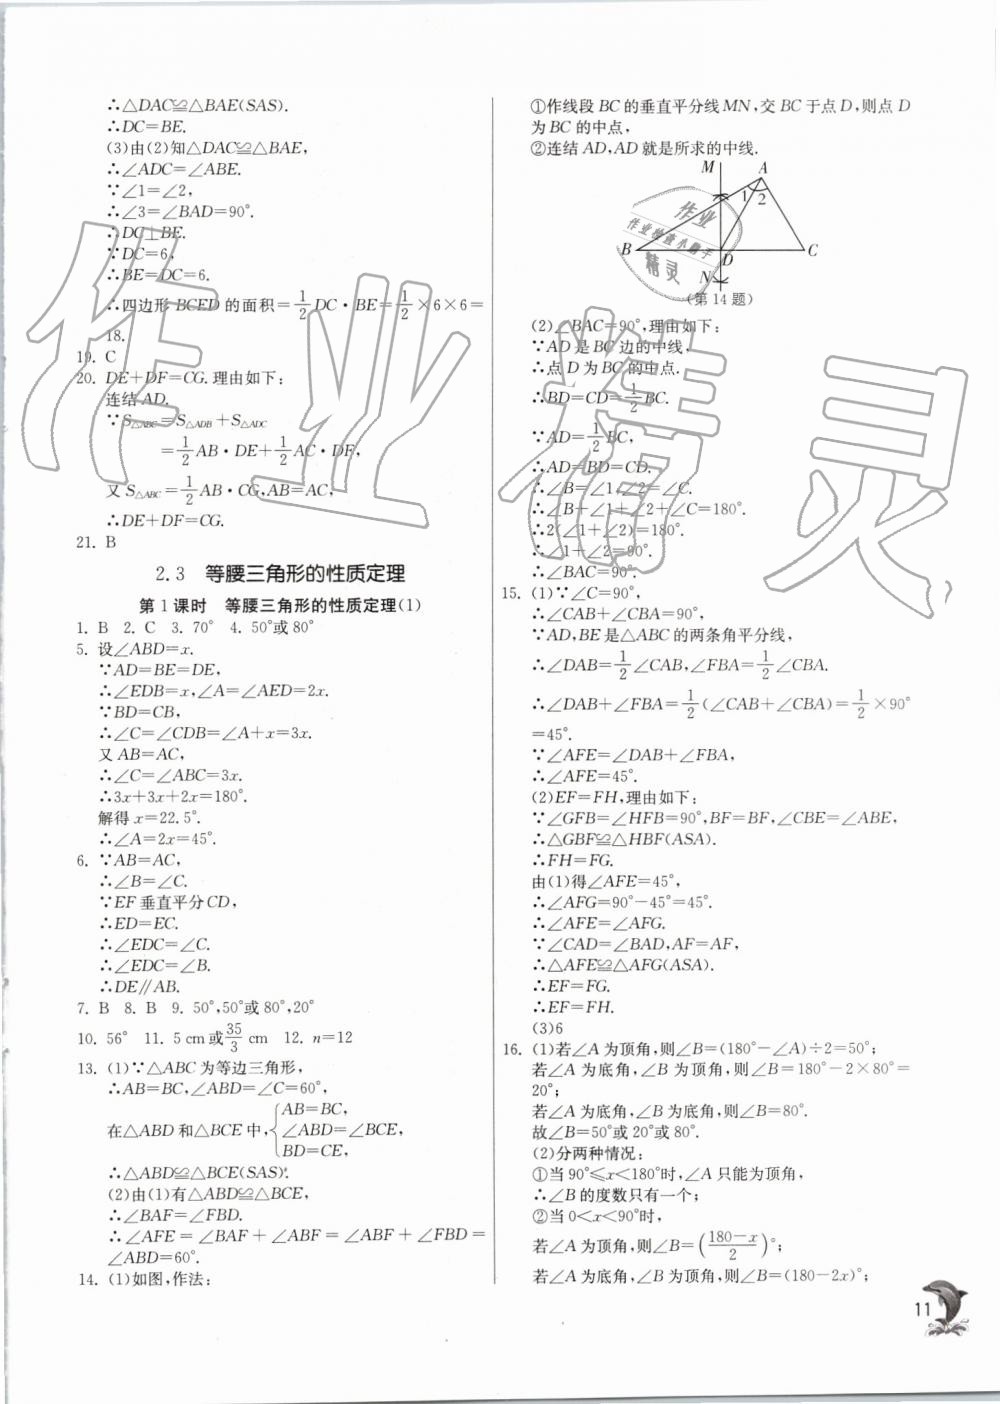 ∴△DAC≌△BAE(SAS).
∴DC=BE.
(3)由(2)知△DAC≌△BAE,
∴∠ADC=∠ABE.
∵∠1=∠2,
∴∠3=∠BAD=90°.
∴DC⊥BE.
∵DC=6,
∴BE=DC=6.
∴四边形BCED的面积=1/2DC·BE=1/2×6×6=
18.
19. C
20. DE+DF=CG.理由如下:
连结AD.
∵S△ABC=S△ADB+S△ADC
=1/2AB·DE+1/2AC·DF,
又S△ABC=1/2AB·CG,AB=AC,
∴DE+DF=CG.
21. B
2.3 等腰三角形的性质定理
第1课时 等腰三角形的性质定理(1)
1. B 2. C 3. 70° 4. 50°或80°
5. 设∠ABD=x.
∵AD=BE=DE,
∴∠EDB=x,∠A=∠AED=2x.
∵BD=CB,
∴∠C=∠CDB=∠A+x=3x.
又AB=AC,
∴∠C=∠ABC=3x.
∴3x+3x+2x=180°.
解得x=22.5°.
∴∠A=2x=45°.
6. ∵AB=AC,
∴∠B=∠C.
∵EF垂直平分CD,
∴ED=EC.
∴∠EDC=∠C.
∴∠EDC=∠B.
∴DE∥AB.
7. B 8. B 9. 50°,50°或80°,20°
10. 56° 11. 5 cm或35/3 cm 12. n=12
13. (1)∵△ABC为等边三角形,
∴AB=BC,∠ABD=∠C=60°,
在△ABD和△BCE中,{AB=BC,
∠ABD=∠BCE,
BD=CE,
∴△ABD≌△BCE(SAS).
(2)由(1)有△ABD≌△BCE,
∴∠BAF=∠FBD.
∴∠AFE=∠BAF+∠ABF=∠ABF+∠FBD=
∠ABD=60°.
14. (1)如图,作法:
①作线段BC的垂直平分线MN,交BC于点D,则点D
为BC的中点,
②连结AD,AD就是所求的中线.
M A
1 2
B D C
N
(第14题)
(2)∠BAC=90°,理由如下:
∵AD是BC边的中线,
∴点D为BC的中点.
∴BD=CD=1/2BC.
∵AD=1/2BC,
∴AD=BD=CD.
∴∠B=∠1,∠2=∠C.
∴∠B+∠1+∠2+∠C=180°.
∴2(∠1+∠2)=180°.
∴∠1+∠2=90°.
∴∠BAC=90°.
15. (1)∵∠C=90°,
∴∠CAB+∠CBA=90°.
∵AD,BE是△ABC的两条角平分线,
∴∠DAB=1/2∠CAB,∠FBA=1/2∠CBA.
∴∠DAB+∠FBA=1/2(∠CAB+∠CBA)=1/2×90°
=45°.
∵∠AFE=∠DAB+∠FBA,
∴∠AFE=45°.
(2)EF=FH,理由如下:
∵∠GFB=∠HFB=90°,BF=BF,∠CBE=∠ABE,
∴△GBF≌△HBF(ASA).
∴FH=FG.
由(1)得∠AFE=45°,
∴∠AFG=90°-45°=45°.
∴∠AFE=∠AFG.
∵∠CAD=∠BAD,AF=AF,
∴△AFE≌△AFG(ASA).
∴EF=FG.
∴EF=FH.
(3)6
16. (1)若∠A为顶角,则∠B=(180°-∠A)÷2=50°;
若∠A为底角,∠B为顶角,则∠B=180°-2×80°=
20°;
若∠A为底角,∠B为底角,则∠B=80°.
故∠B=50°或20°或80°.
(2)分两种情况:
①当90°≤x<180°时,∠A只能为顶角,
∴∠B的度数只有一个;
②当0<x<90°时,
若∠A为顶角,则∠B=(180-x/2)°;
若∠A为底角,∠B为顶角,则∠B=(180-2x)°;
11
作业精灵
作业
作业检查小助手
精灵